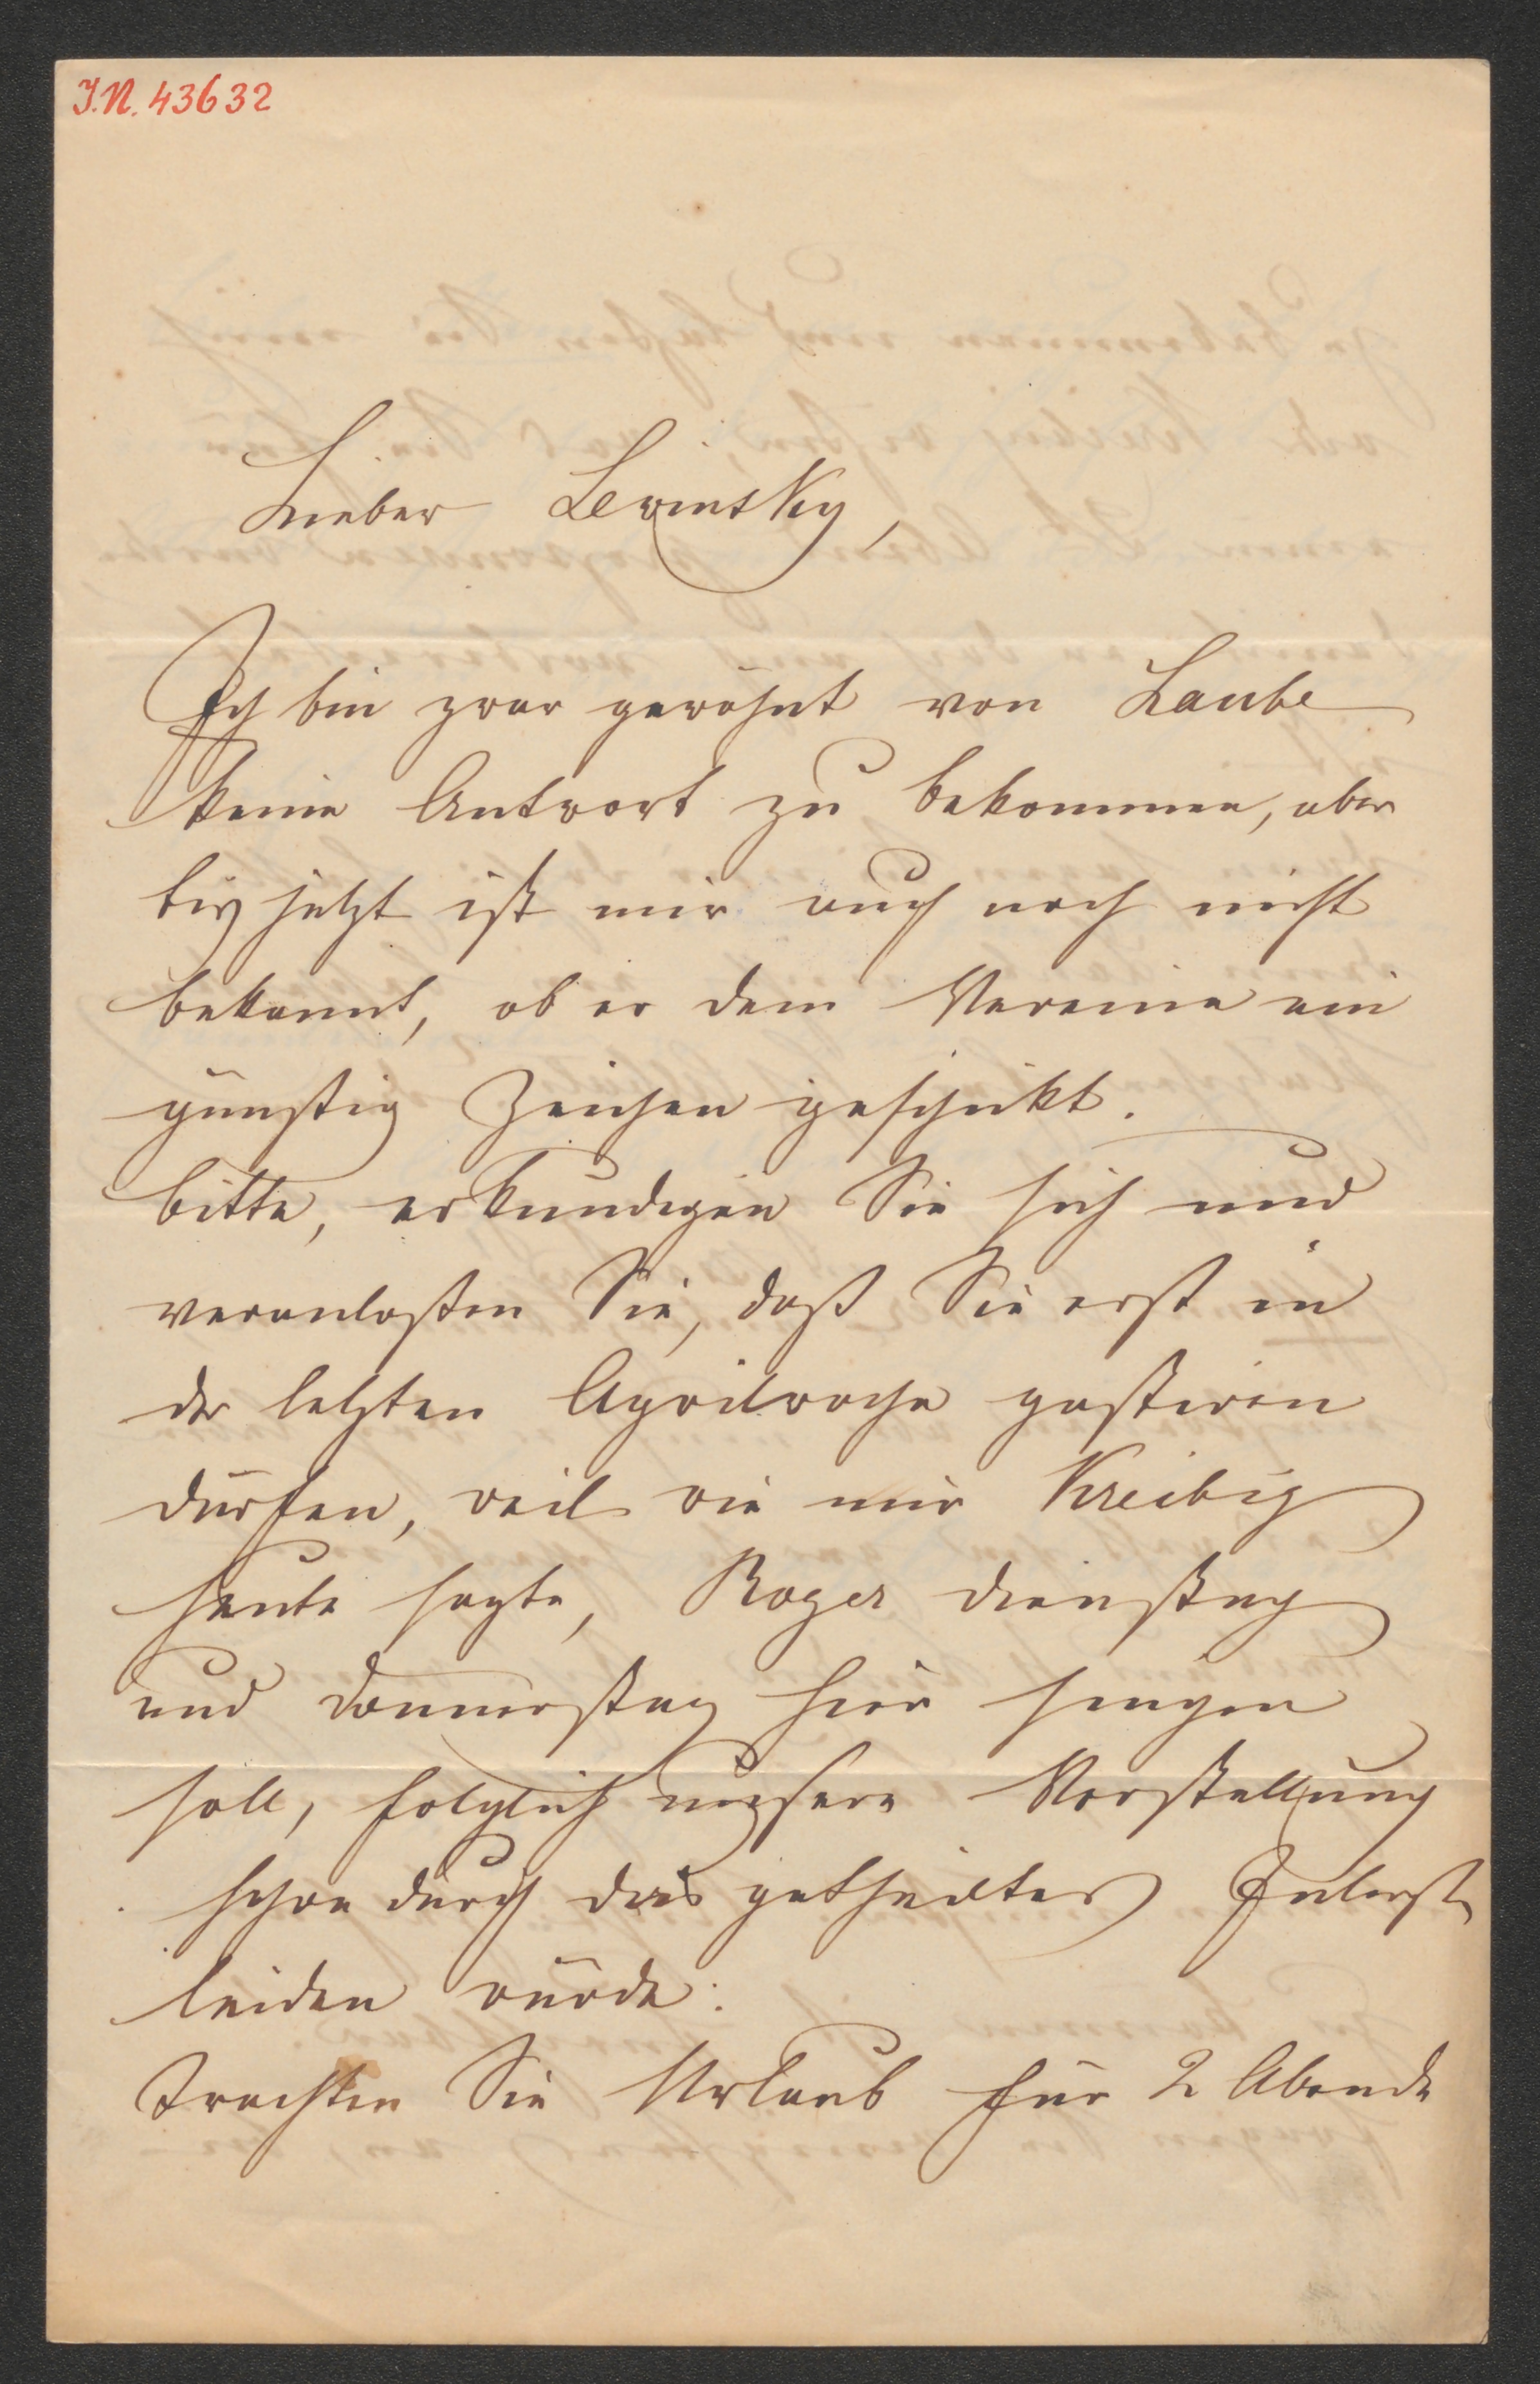 I.N. 43632
Lieber Lewinsky,
Ich bin zwar gewöhnt von Laube
keine Antwort zu bekommen, aber
bis jetzt ist mir auch noch nicht
bekannt, ob er dem Vereine ein
günstig Zeichen geschickt.
bitte, erkundigen Sie sich und
veranlaßen Sie, daß Sie erst in
der letzten Aprilwoche gastiren
dürfen, weil wie mir Kreibig
heute sagte, Roger dienstag
und Donnerstag hier singen
soll, folglich unsere Vorstellung
schon durch das getheiltes Interesse
leiden würde.
Trachten Sie Urlaub für 2 Abende